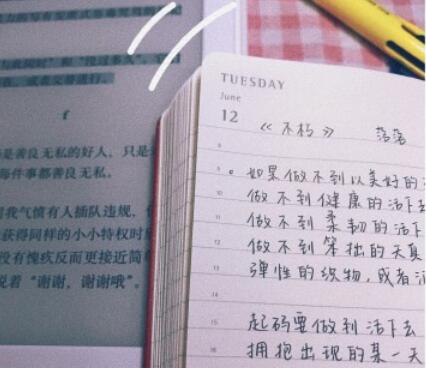 f
是善良无私的好人，只是
每件事都善良无私。
我气愤有人插队违规，
获得同样的小小特权时
没有愧疚反而更接近简
说着“谢谢，谢谢哦”。
TUESDAY
June
12
《不朽》 落落
8
9 如果做不到以美好的
10 做不到健康的活下去
11 做不到柔韧的活下
12 做不到笨拙的天真
13 弹性的织物，或者
14
15 起码要做到活下去
16 拥抱出现的某一天